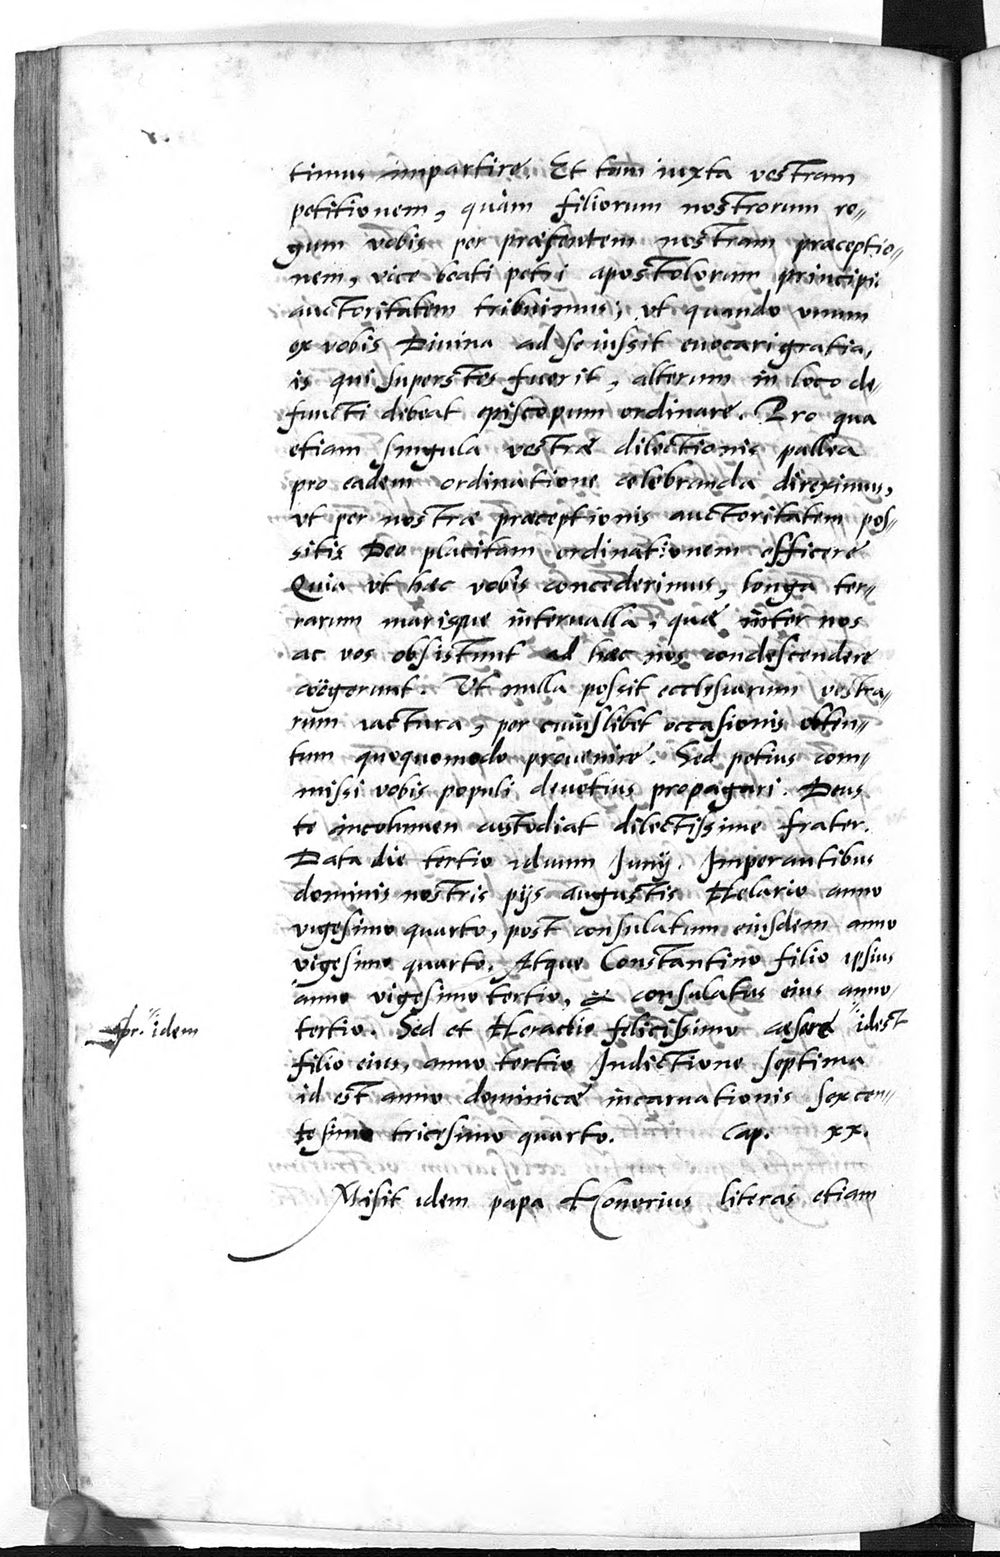 timus impartire. Et tam iuxta vestram
petitionem, quàm filiorum nostrorum re„
gum vobis per præsentem nostram præceptio„
nem, vice beati petri apostolorum principis
auctoritatem tribuimus, vt quando vnum
ex vobis Diuina ad se iussit euocari gratia,
is qui superstes fuerit, alterum in loco de„
functi debeat episcopum ordinare. Pro qua
etiam singula vestræ dilectionis pallea
pro eadem ordinatione celebranda direximus,
vt per nostræ præceptionis auctoritatem pos„
sitis Deo placitam ordinationem efficere
Quia vt hæc vobis concederimus, longa ter„
rarum marisque interualla, quæ inter nos
ac vos obsistunt ad hæc nos condescendere
coögerunt. Vt nulla possit ecclesiarum vestra„
rum iactura, per cuiuslibet occasionis obten„
tum quoquomodo prouenire. Sed potius com„
missi vobis populi deuotius propagari. Deus
te incolumen custodiat dilectissime frater.
Data die tertio iduum Iunij. Imperantibus
dominis nostris pijs augustis Helario anno
vigesimo quarto, post consulatum eiusdem anno
vigesimo quarto. Atque Constantino filio ipsius
anno vigesimo tertio, & consulatus eius anno
idem
tertio. Sed et Heraclio felicissimo cæsare "idest
filio eius, anno tertio Indictione septima
id est anno dominicæ incarnationis sexcen„
tesimo tricesimo quarto. Cap. xx.
Misit idem papa Honorius literas etiam